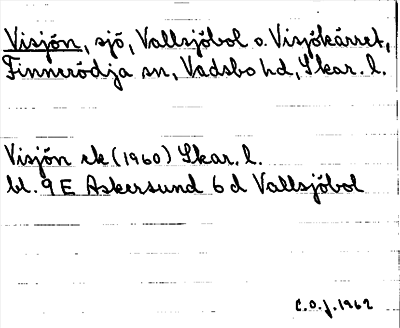 Visjön, sjö, Vallsjöbol o. Visjökärret,
Finnerödja sn, Vadsbo hd, Skar. l.
Visjön ek (1960) Skar. l.
bl. 9 E Askersund 6 d Vallsjöbol
C.O.J. 1962